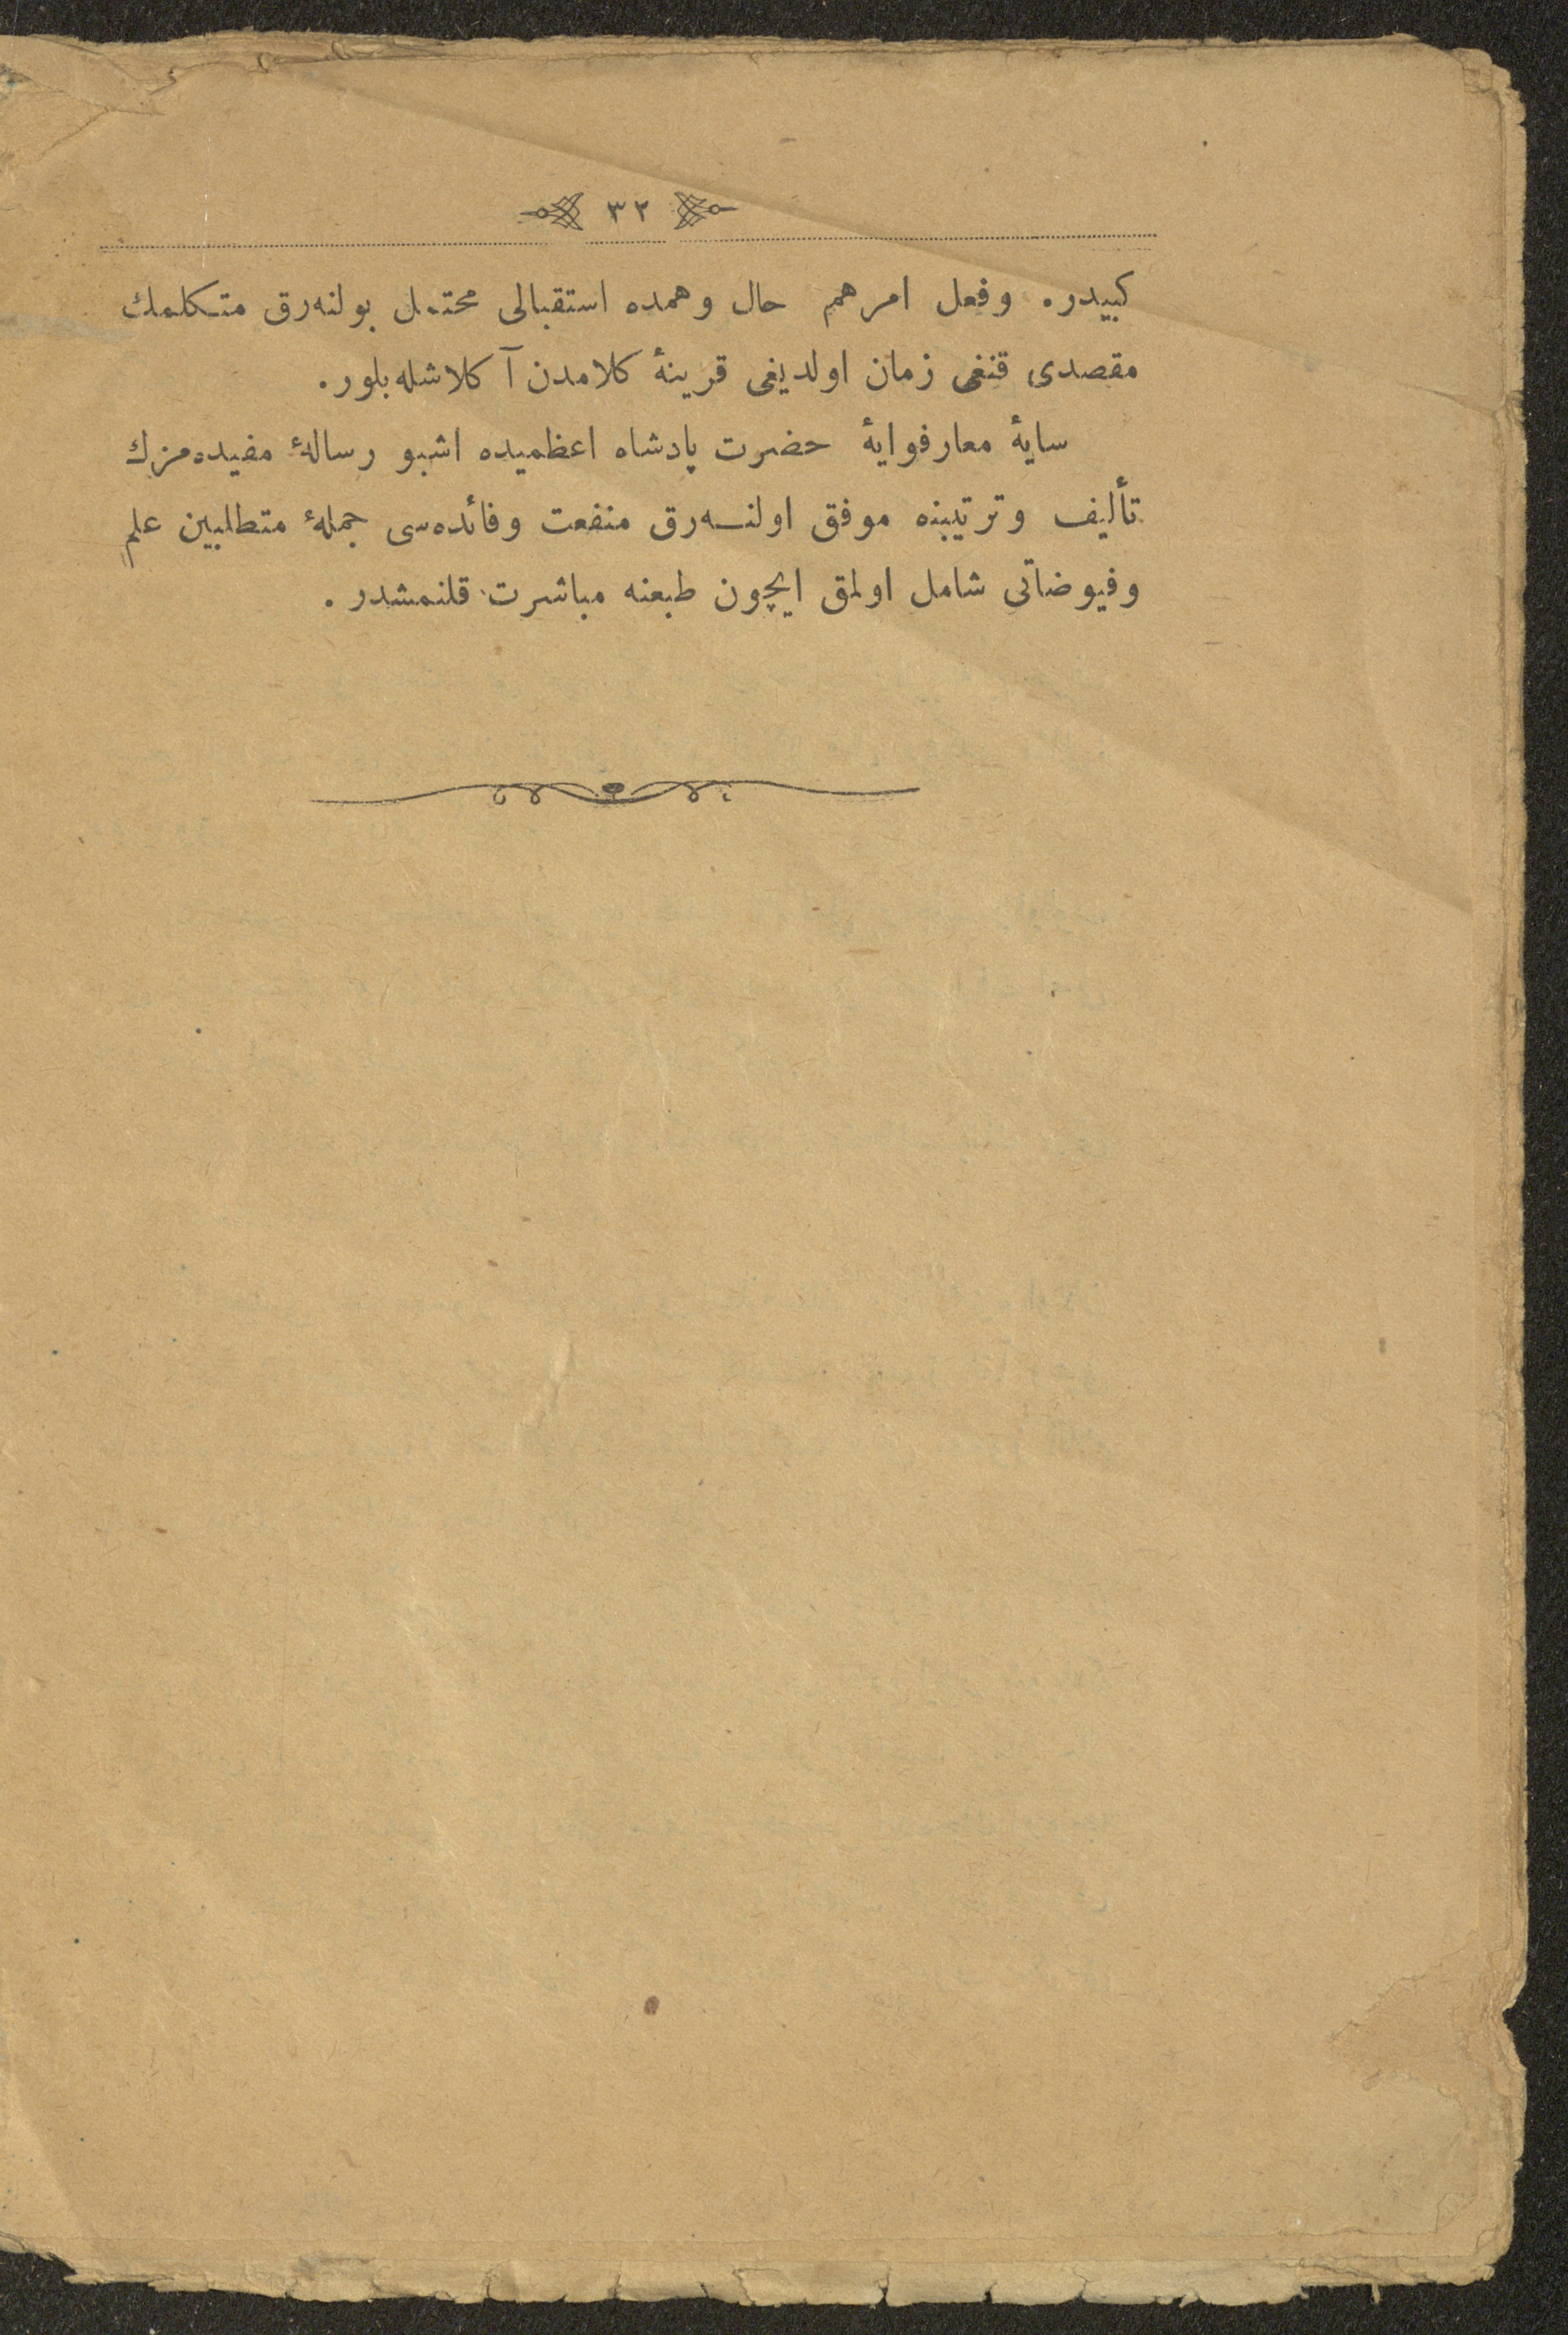 ٣٢
كبيدر. وفعل امر هم حال وهمده استقبالى محتمل بولنه‌رق متكلمك
مقصدى قنغى زمان اولديغى قرينۀ كلامدن آكلاشله بلور.
سايۀ معارفوايۀ حضرت پادشاه اعظميده اشبو رسالۀ مفيده‌مزك
تأليف وترتيبنه موفق اولنـه‌رق منفعت وفائده‌سى جملۀ متطلبين علم
وفيوضاتى شامل اولمق ايچون طبعنه مباشرت قلنمشدر.